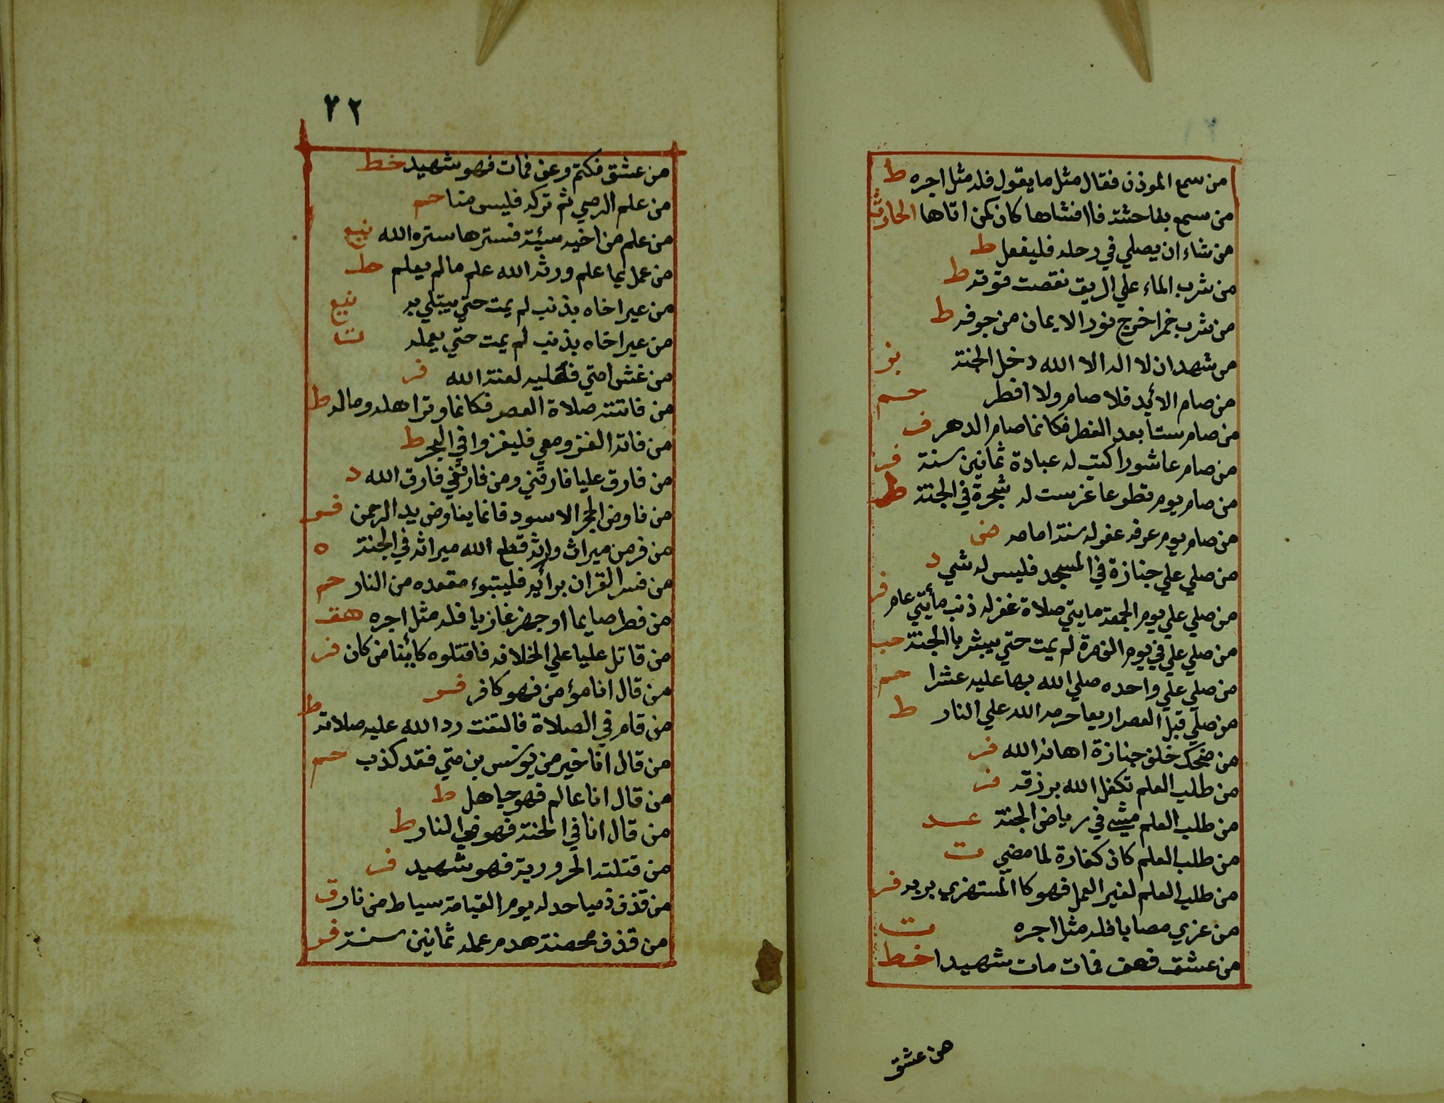 من سمع الموذن فقال مثل ما يقول فله مثل اجره ط
من سمع بفاحشة فاافشاها كان كمن اتاها الحارث
من شاء ان يصلي في رحله فليفعل ط
من شرب الماء علي الريق نقصت قوته ط
من شرب خمرا خرج نور الايمان من جوفه ط
من شهد ان لا اله الا الله دخل الجنة بز
من صام الابد فلا صام ولا افطر حم
من صام ستا بعد الفطر فكانما صام الدهر ق
من صام عاشورا كتب له عبادة ثمانين سنة فر
من صام يوم تطوعا غرست له شجرة في الجنة ط
من صام يوم عرفه غفر له سنة امامه ض
من صلي علي جنازة في المسجد فليس له شي د
من صلي علي يوم الجمعة مايتي صلاة غفر له ذنب مأيتي عام فر
من صلي علي في يوم الف مرة لم يمت حتي يبشر باالجنة حب
من صلي علي واحده صلي الله بها عليه عشرا حم
من صلي قبل العصر اربعا حرمه الله علي النار ط
من ضحك خلف جنازة اهانه الله فر
من طلب العلم تكفل الله برزقه فر
من طلب العلم مشي في رياض الجنة عد
من طلب العلم كان كفارة لما مضي ت
من طلب العلم لغير العمل فهو كا المستهزي بربه فر
من عزي مصابا فله مثل اجره ت
من عشق فعف فمات مات شهيدا خط
من عشق
٢٢
من عشق فكتم وعف فمات فهو شهيد خط
من علم الرمي ثم تركه فليس منا حم
من علم من اخيه سيئة فسترها ستره الله
من عمل بما علم ورثه الله علم ما لم يعلم حل
من عير اخاه بذنب لم يمت حتي يبتلي به
من عير اخاه بذنب لم يمت حتي يعمله ت
من غش امتي فعليه لعنة الله فر
من فاتته صلاة العصر فكانما وتر اهله وماله ط
من فاته الغزو معي فليغزوا في البحر ط
من فارق عليا فارقني ومن فارقني فارق الله د
من فاوض الحجر الاسود فانما يفاوض يد الرحمن فر
من فر من ميراث وارثه قطع الله ميراثه في الجنة ه
من فسر القران برأيه فليتبوء مقعده من النار حم
من فطر صايما او جهز غازيا فله مثل اجره هق
من قاتل عليا علي الخلافه فاقتلوه كائنا من كان فر
من قال انا مؤمن فهو كافر فر
من قام في الصلاة فالتفت رد الله عليه صلاته ط
من قال انا خير من يونس بن متي فقد كذب حم
من قال انا عالم فهو جاهل ط
من قال انا في الجنة فهو في النار ط
من قتلته الحرورية فهو شهيد فر
من قذف ذميا حد له يوم القيامة سياط من نار ق
من قذف محصنة هدم عمله ثمانين سنة فر